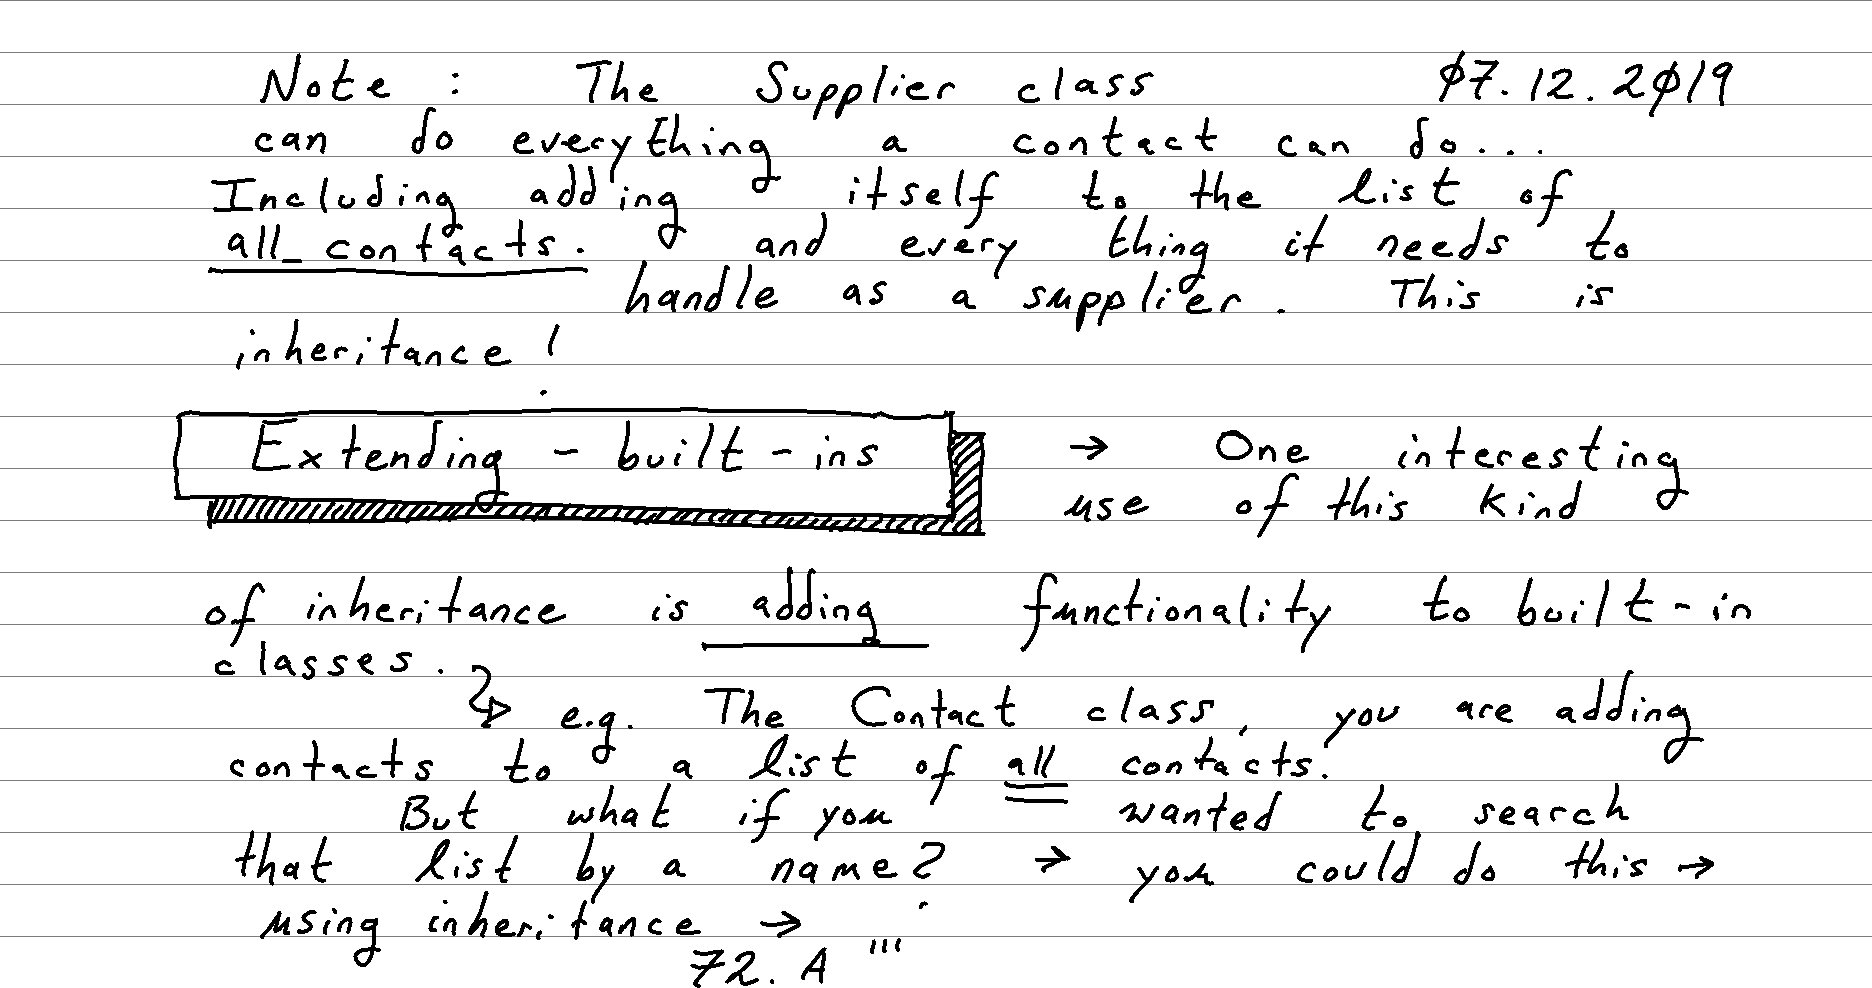 Note : The Supplier class 07.12.2019
can do everything a contact can do...
Including adding itself to the list of
all_contacts. and every thing it needs to
handle as a supplier. This is
inheritance!
Extending - built-ins → One interesting
use of this kind
of inheritance is adding functionality to built-in
classes.
e.g. The Contact class, you are adding
contacts to a list of all contacts.
But what if you wanted to search
that list by a name? → you could do this →
using inheritance →
72. A '''